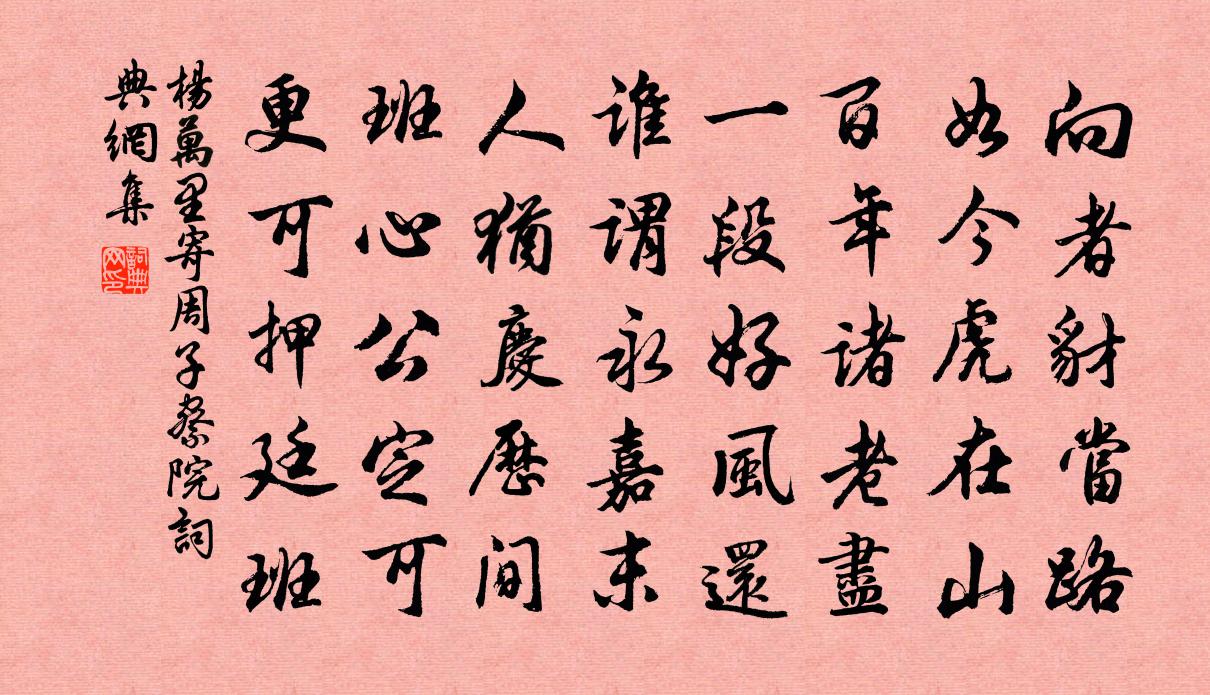 向者豺當路
如今虎在山
百年諸老盡
一段好風還
誰謂永嘉末
人猶慶歷間
班心公定可
更可押廷班
楊萬里寄周子察院詞
典網集
詞典网印